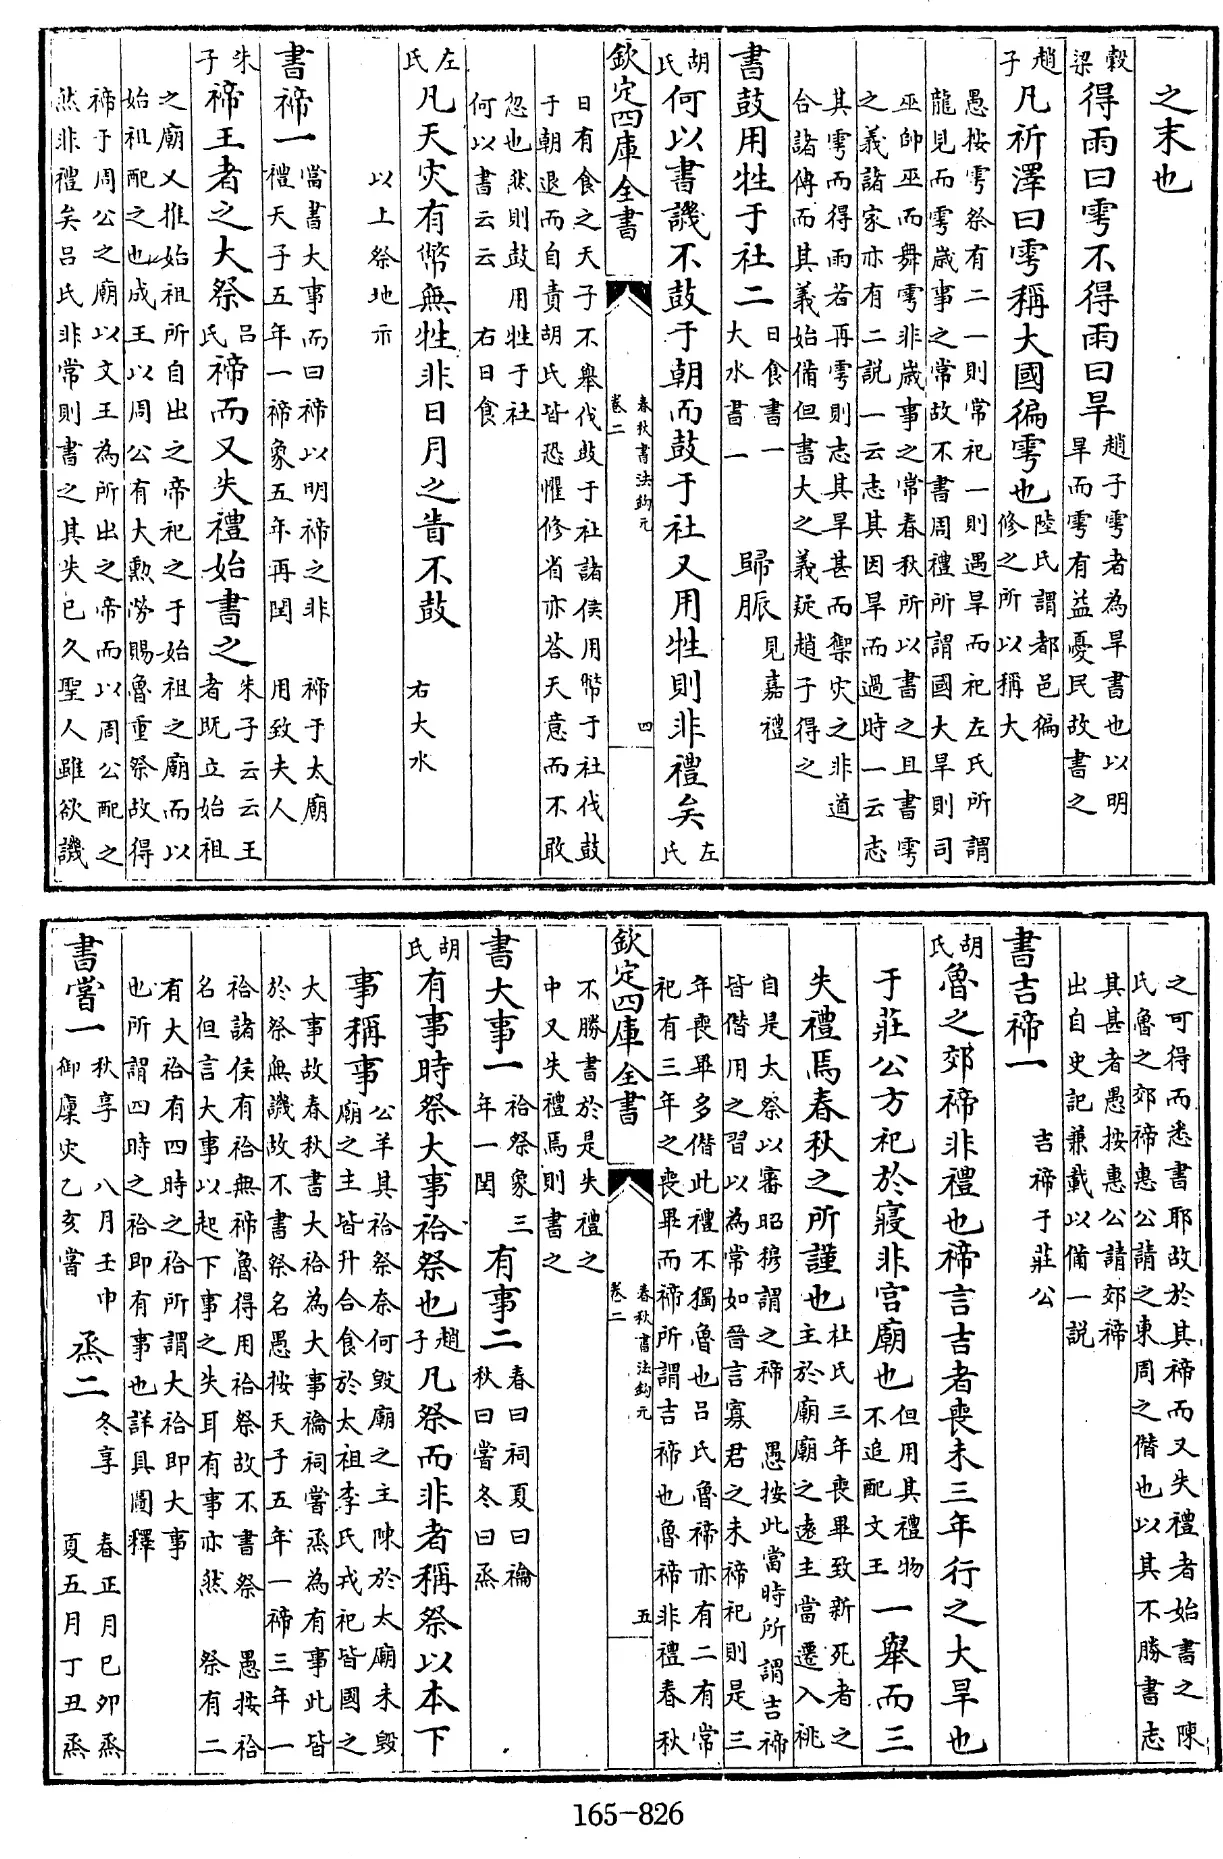 之末也
穀梁得雨曰雩不得雨曰旱趙子雩者為旱書也以明
旱而雩有益憂民故書之
趙子凡祈澤曰雩稱大國徧雩也陸氏謂都邑徧
修之所以稱大
愚按雩祭有二一則常祀一則遇旱而祀左氏所謂
龍見而雩歲事之常故不書周禮所謂國大旱則司
巫帥巫而舞雩非歲事之常春秋所以書之且書雩
之義諸家亦有二説一云志其因旱而過時一云志
其雩而得雨若再雩則志其旱甚而禦灾之非道
合諸傳而其義始備但書大之義疑趙子得之
書鼓用牲于社二日食書一
大水書一
歸脤見嘉禮
胡氏何以書譏不鼓于朝而鼓于社又用牲則非禮矣左氏
欽定四庫全書
春秋書法鈎元
卷二
四
日有食之天子不舉伐鼓于社諸侯用幣于社伐鼓
于朝退而自責胡氏皆恐懼修省亦答天意而不敢
忽也然則鼓用牲于社
何以書云云 右日食
左氏凡天灾有幣無牲非日月之眚不鼓 右大水
以上祭地示
書禘一當書大事而曰禘以明禘之非 禘于太廟
禮天子五年一禘象五年再閏 用致夫人
朱子禘王者之大祭吕氏禘而又失禮始書之朱子云云王
者既立始祖
之廟又推始祖所自出之帝祀之于始祖之廟而以
始祖配之也成王以周公有大勲勞賜魯重祭故得
禘于周公之廟以文王為所出之帝而以周公配之
然非禮矣吕氏非常則書之其失已久聖人雖欲譏
之可得而悉書耶故於其禘而又失禮者始書之陳
氏魯之郊禘惠公請之東周之僭也以其不勝書志
其甚者愚按惠公請郊禘
出自史記兼載以備一説
書吉禘一 吉禘于莊公
胡氏魯之郊禘非禮也禘言吉者喪未三年行之大早也
于莊公方祀於寢非宫廟也但用其禮物
不追配文王
一舉而三
失禮焉春秋之所謹也杜氏三年喪畢致新死者之
主於廟廟之遠主當遷入祧
自是大祭以審昭穆謂之禘 愚按此當時所謂吉禘
皆僭用之習以為常如晉言寡君之未禘祀則是三
年喪畢多僭此禮不獨魯也吕氏魯禘亦有二有常
祀有三年之喪畢而禘所謂吉禘也魯禘非禮春秋
欽定四庫全書
春秋書法鈎元
卷二
五
不勝書於是失禮之
中又失禮焉則書之
書大事一祫祭象三
年一閏
有事二春曰祠夏曰禴
秋曰嘗冬曰烝
胡氏有事時祭大事祫祭也趙子凡祭而非者稱祭以本下
事稱事公羊其祫祭奈何毁廟之主陳於太廟未毁
廟之主皆升合食於太祖李氏戎祀皆國之
大事故春秋書大祫為大事禴祠嘗烝為有事此皆
於祭無譏故不書祭名愚按天子五年一禘三年一
祫諸侯有祫無禘魯得用祫祭故不書祭 愚按祫
名但言大事以起下事之失耳有事亦然 祭有二
有大祫有四時之祫所謂大祫即大事
也所謂四時之祫即有事也詳具圖釋
書嘗一秋享 八月壬申
御廩灾乙亥嘗
烝二冬享 春正月己卯烝
夏五月丁丑烝
165-826